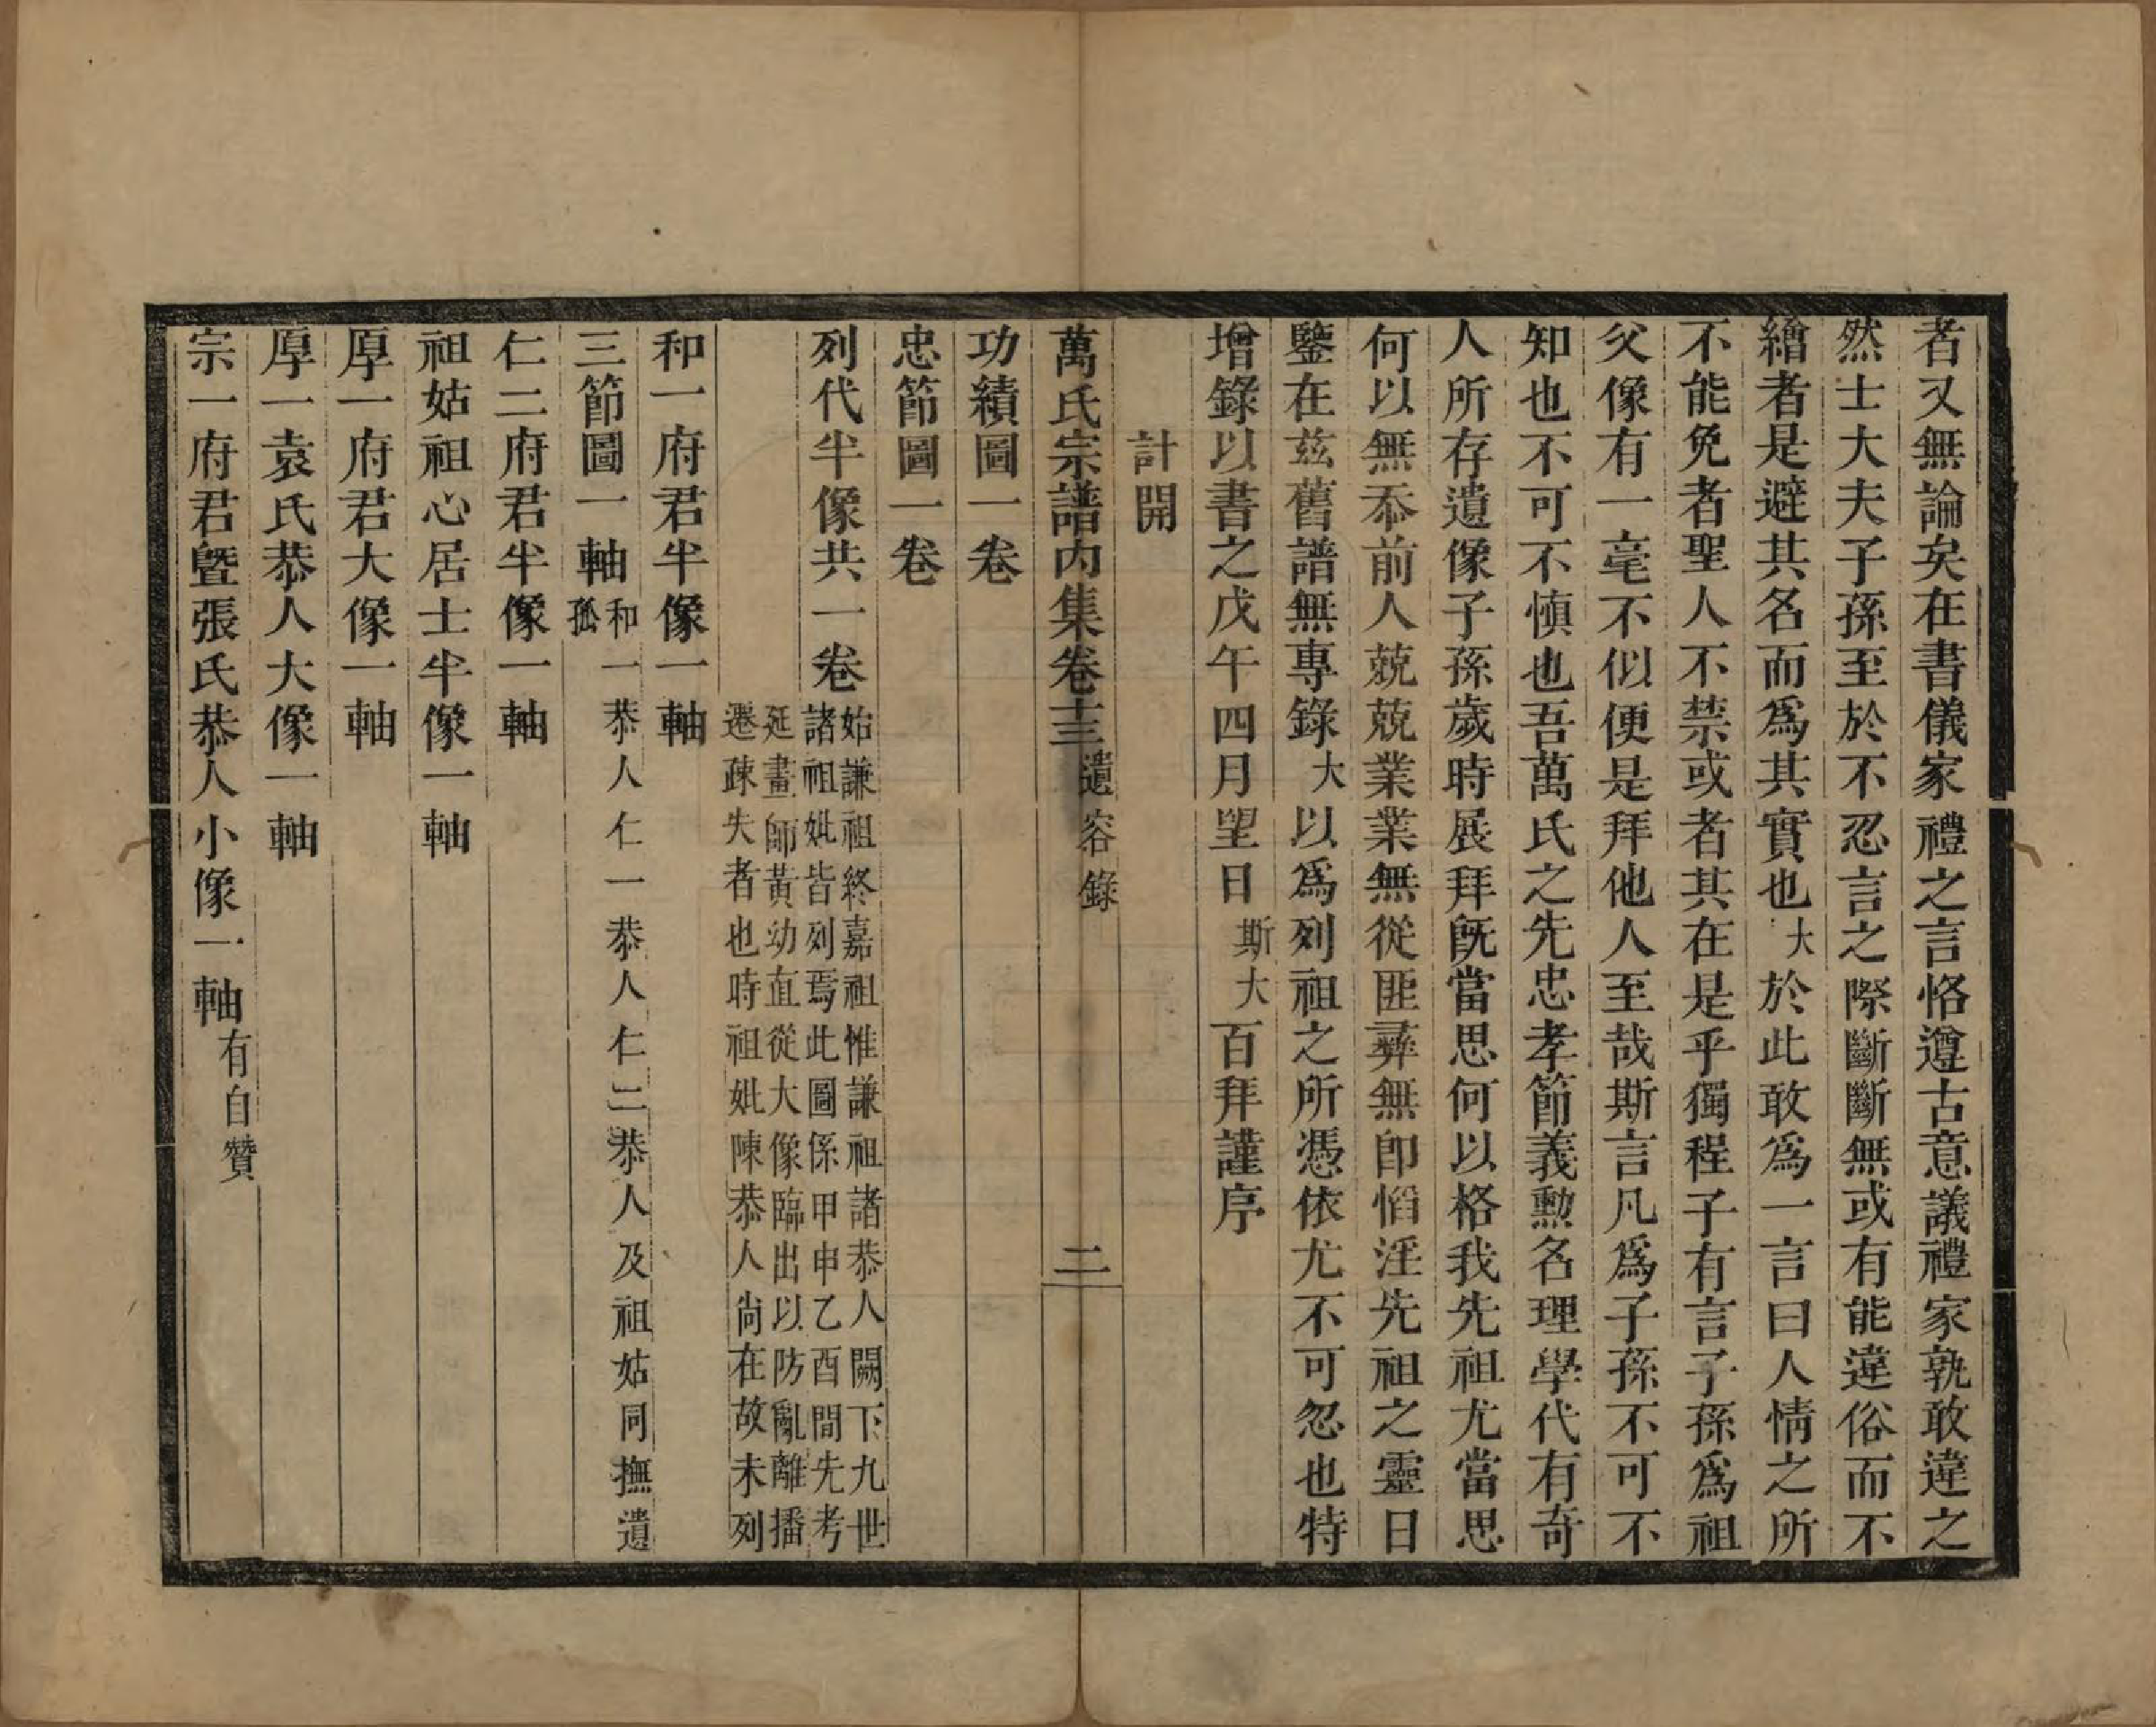 者又無論矣在書儀家禮之言恪遵古意議禮家孰敢違之
然士大夫子孫至於不忍言之際斷斷無或有能違俗而不
繪者是避其名而爲其實也大於此敢爲一言曰人情之所
不能免者聖人不禁或者其在是乎獨程子有言子孫爲祖
父像有一毫不似便是拜他人至哉斯言凡爲子孫不可不
知也不可不慎也吾萬氏之先忠孝節義勳名理學代有奇
人所存遺像子孫歲時展拜旣當思何以格我先祖尤當思
何以無忝前人兢兢業業無從匪彝無卽慆淫先祖之靈日
鑒在茲舊譜無專錄大以爲列祖之所憑依尤不可忽也特
增錄以書之戊午四月望日斯大百拜謹序
計開
萬氏宗譜內集卷十三遺容錄 二
功績圖一卷
忠節圖一卷
列代半像共一卷
始謙祖終嘉祖惟謙祖諸恭人闕下九世
諸祖妣皆列焉此圖係甲申乙酉間先考
延畫師黃幼直從大像臨出以防亂離播
遷疎失者也時祖妣陳恭人尙在故未列
和一府君半像一軸
三節圖一軸和一恭人仁一恭人仁二恭人及祖姑同撫遺
孤
仁二府君半像一軸
祖姑祖心居士半像一軸
厚一府君大像一軸
厚一袁氏恭人大像一軸
宗一府君曁張氏恭人小像一軸有自贊